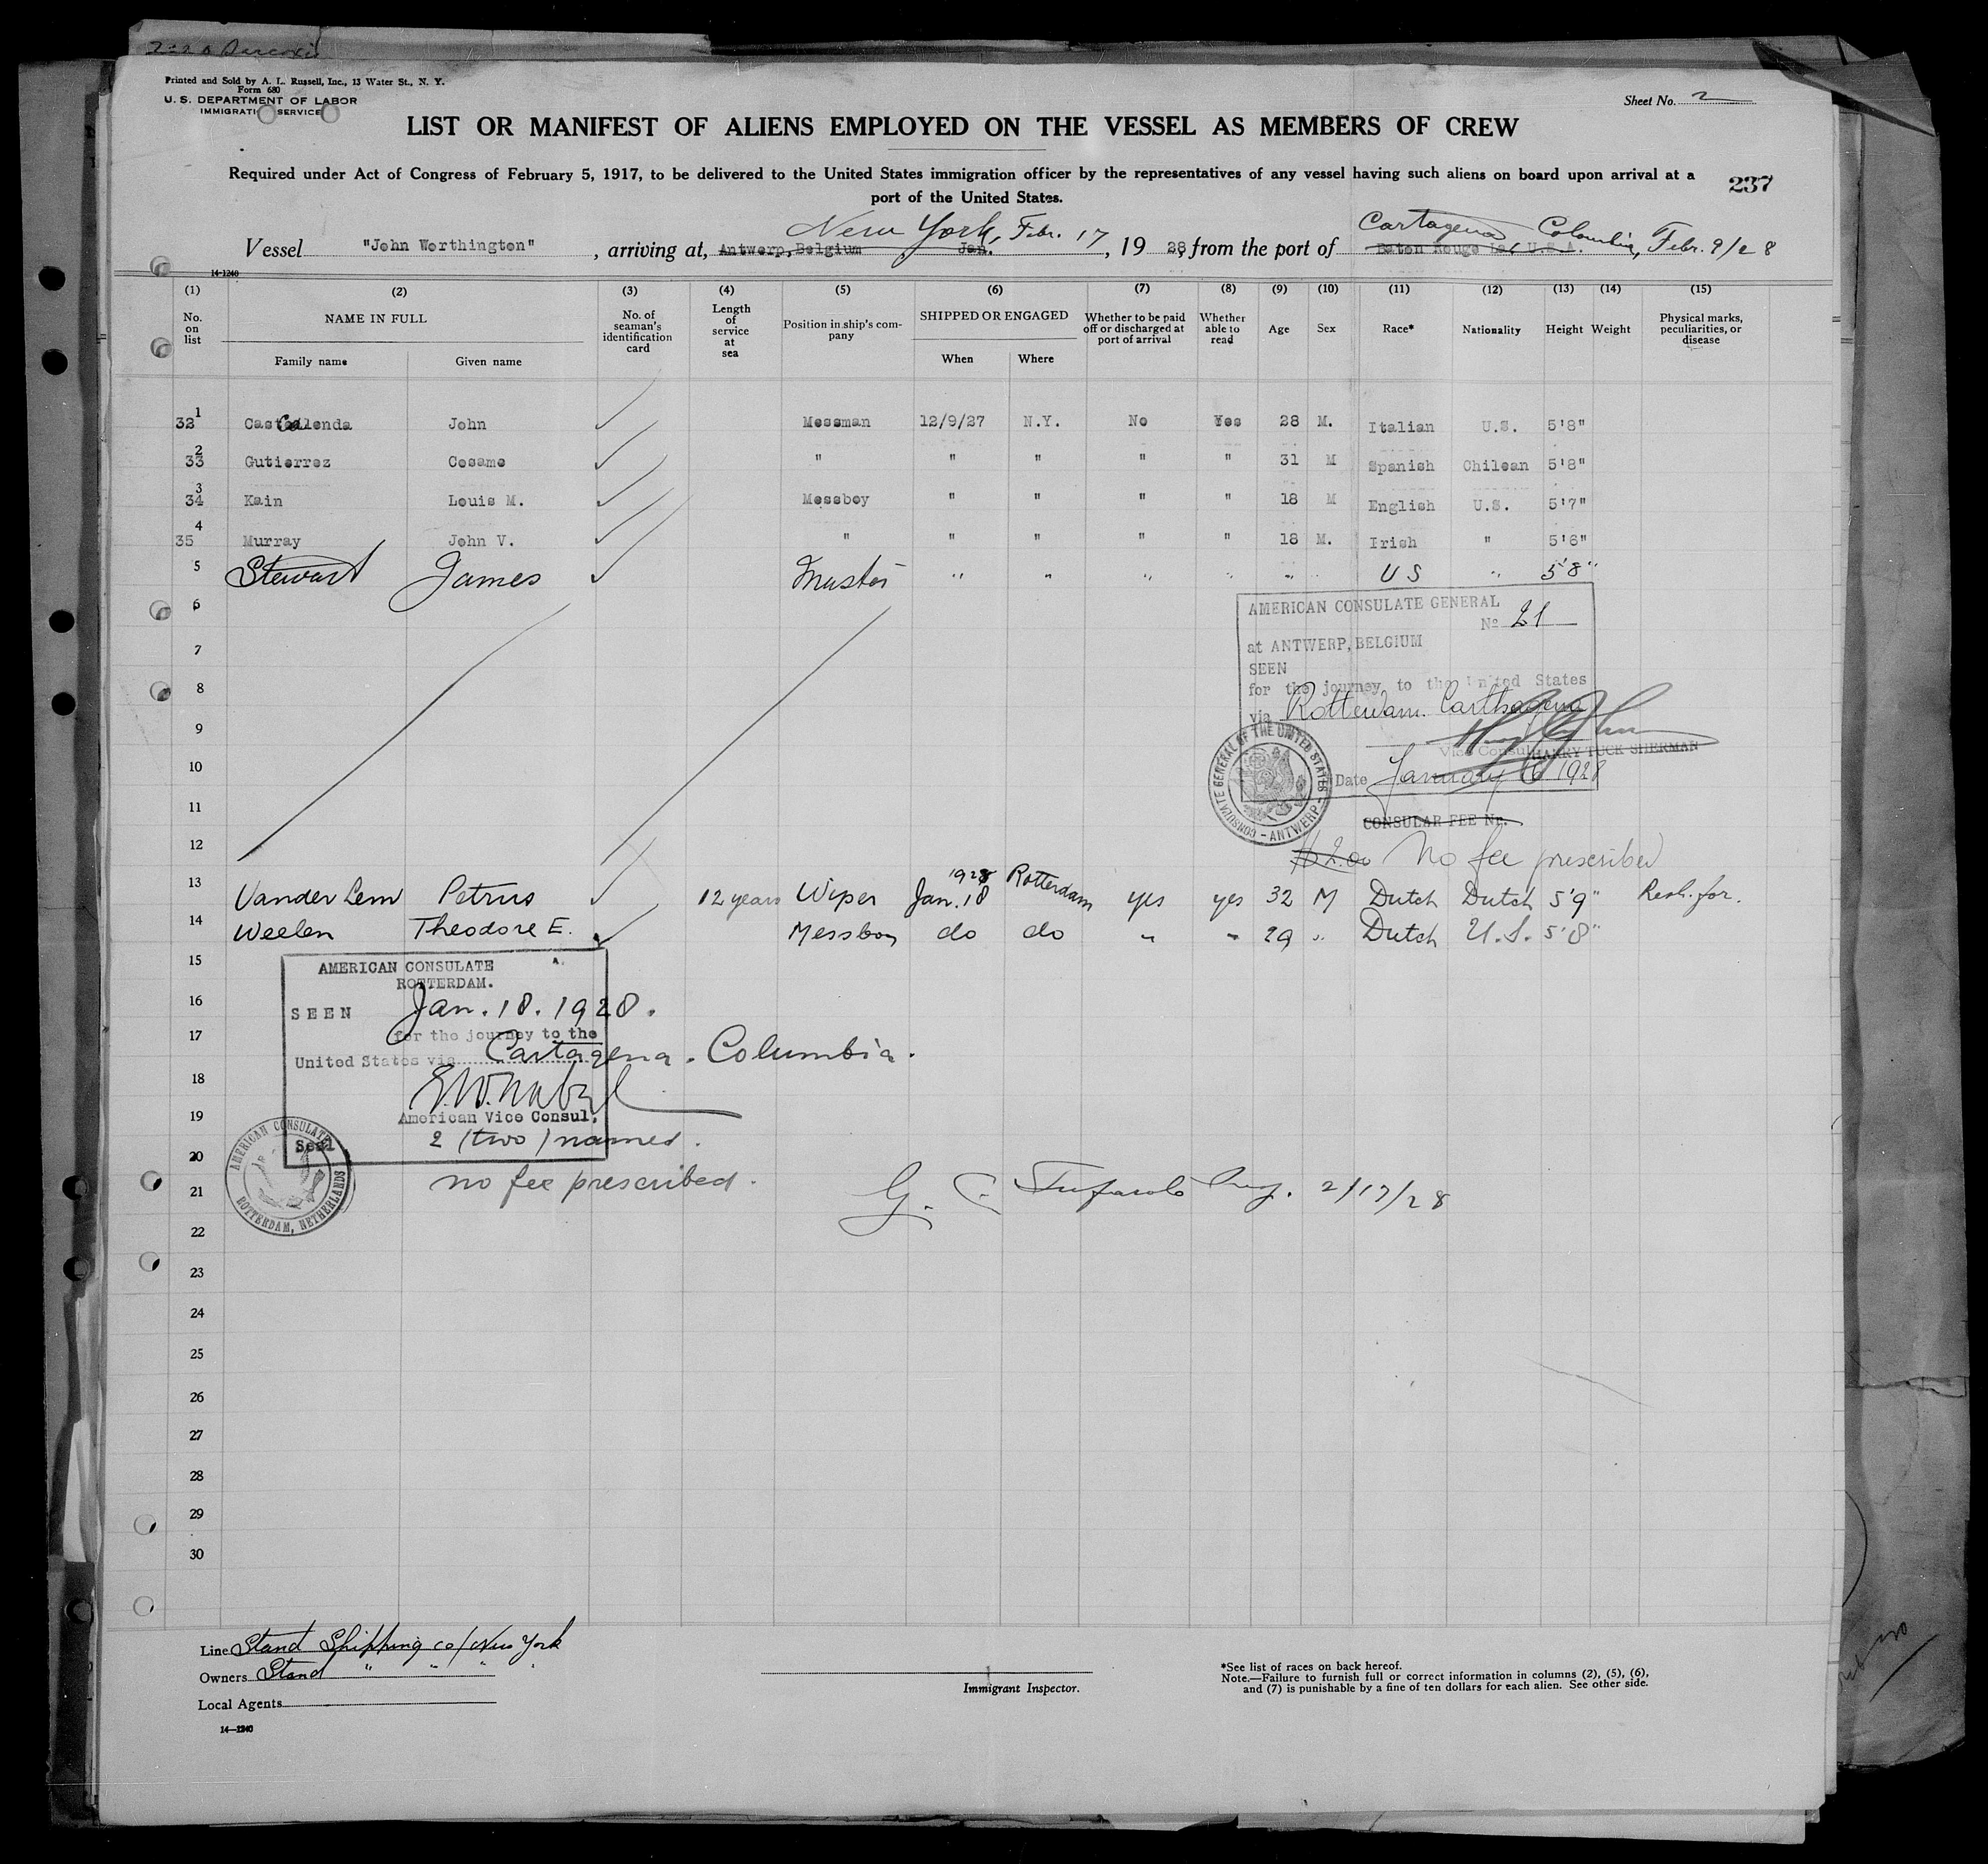 Printed and Sold by A. L. Russell, Inc., 13 Water St., N. Y.
Form 680
U. S. DEPARTMENT OF LABOR
IMMIGRATION SERVICE
Sheet No. 2
LIST OR MANIFEST OF ALIENS EMPLOYED ON THE VESSEL AS MEMBERS OF CREW
Required under Act of Congress of February 5, 1917, to be delivered to the United States immigration officer by the representatives of any vessel having such aliens on board upon arrival at a
port of the United States.
237
New York, Febr. 17 Cartagena Colombia, Febr. 9/28
Vessel "John Worthington" , arriving at, Antwerp, Belgium Jan. , 19 28, from the port of Baton Rouge La, U.S.A.
14-1240
(1) (2) (3) (4) (5) (6) (7) (8) (9) (10) (11) (12) (13) (14) (15)
No. on list
NAME IN FULL
Family name Given name
No. of seaman's identification card
Length of service at sea
Position in ship's company
SHIPPED OR ENGAGED
When Where
Whether to be paid off or discharged at port of arrival
Whether able to read
Age Sex Race* Nationality Height Weight
Physical marks, peculiarities, or disease
32 1 John Messman 12/9/27 N.Y. No Yes 28 M. Italian U.S. 5'8"
33 2 Gutierrez Cosame " " " " " 31 M Spanish Chilean 5'8"
34 3 Kain Louis M. Messboy " " " " 18 M English U.S. 5'7"
35 4 Murray John V. " " " " " 18 M. Irish " 5'6"
5 Stewart James " " " " " U S " 5'8"
6
7
8
9
10
11
12
AMERICAN CONSULATE GENERAL
No 21
at ANTWERP, BELGIUM
SEEN
for the journey to the United States
via Rotterdam. Carthagena
Vice Consul HARRY TUCK SHERMAN
Date January 16 1928
CONSULATE GENERAL OF THE UNITED STATES - ANTWERP -
CONSULAR FEE Nr.
$2.00 No fee prescribed
13 Vander Lem Petrus 12 years Wiper Jan. 18 1928 Rotterdam yes yes 32 M Dutch Dutch 5'9"
14 Weelen Theodore E. Messboy do do " " 29 " Dutch U.S. 5'8"
15
16
17
18
19
20
21
22
23
24
25
26
27
28
29
30
AMERICAN CONSULATE
ROTTERDAM.
SEEN Jan. 18. 1928.
for the journey to the
United States via Cartagena. Columbia.
American Vice Consul,
Seal 2 (two) names.
AMERICAN CONSULATE ROTTERDAM, NETHERLANDS
no fee prescribed.
G. C. 2/17/28
Line Stand Shipping co/New York
Owners Stand " " " "
Local Agents
14-1240
Immigrant Inspector.
*See list of races on back hereof.
Note.—Failure to furnish full or correct information in columns (2), (5), (6),
and (7) is punishable by a fine of ten dollars for each alien. See other side.